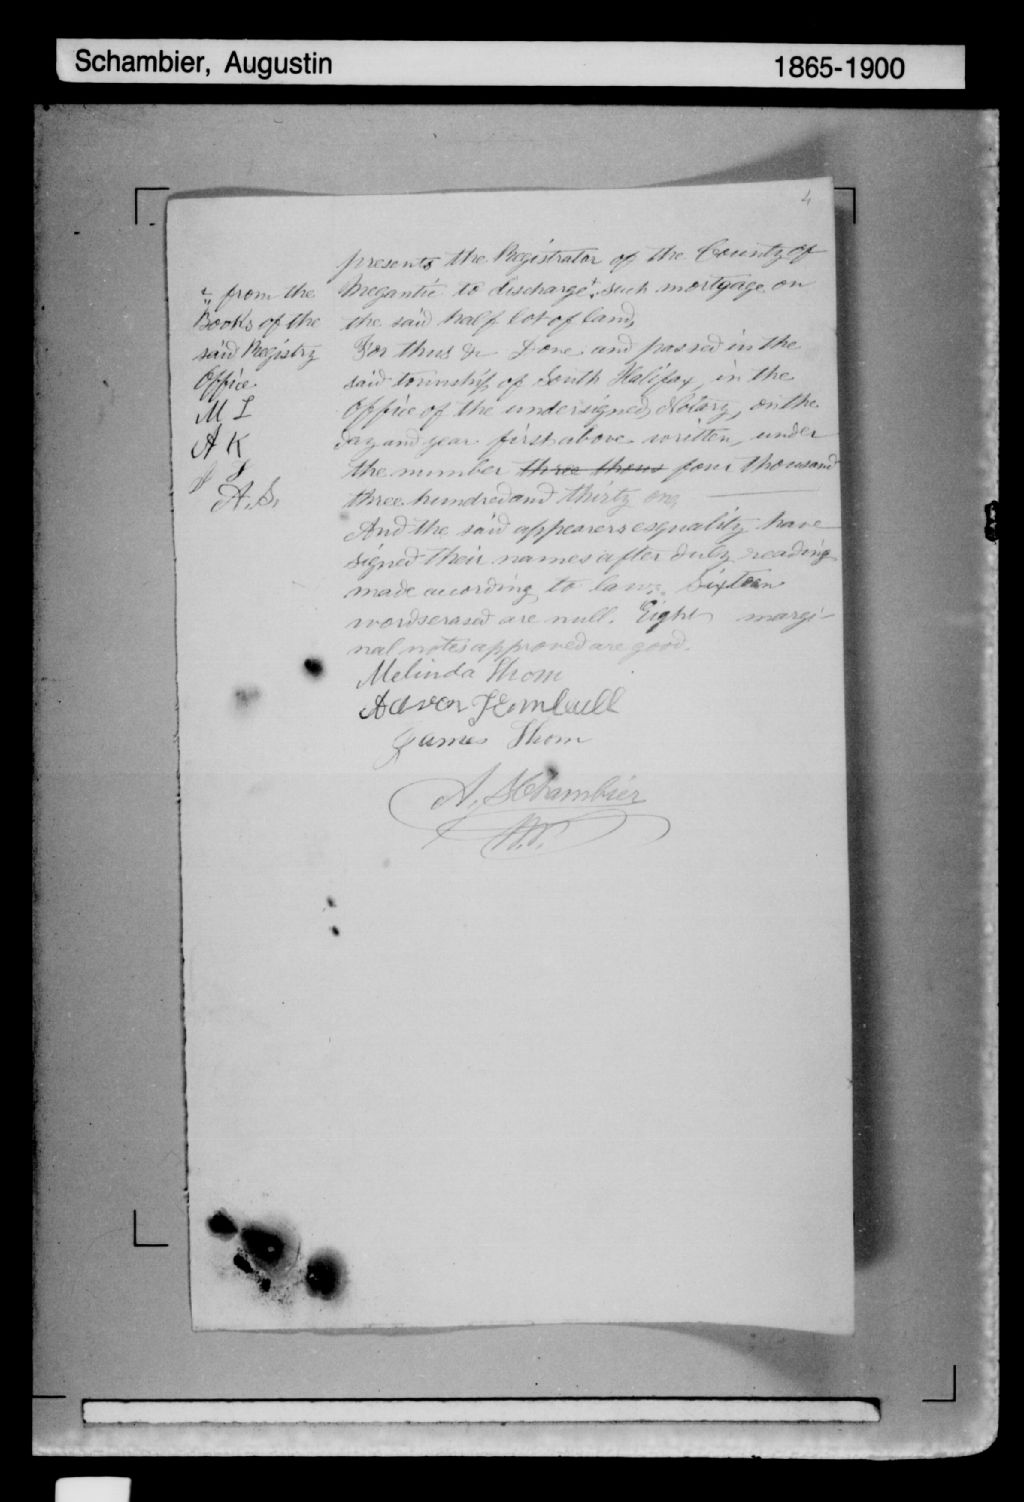 Schambier, Augustin
1865-1900
4
presents the Registrator of the County of
Megantic to discharge such mortgage on
the said half lot of land,
For thus &c Done and passed in the
said township of South Halifax, in the
Office of the undersigned Notary, on the
day and year first above written, under
the number three thous four thousand
three hundred and thirty one,
And the said appearers esquality have
signed their names after duly reading
made according to law. Sixteen
words erased are null. Eight margi-
nal notes approved are good.
from the
Books of the
said Registry
Office
M T
A K
J T
A. S.
Melinda Thom
James Thom
A. SChambier
N.P.